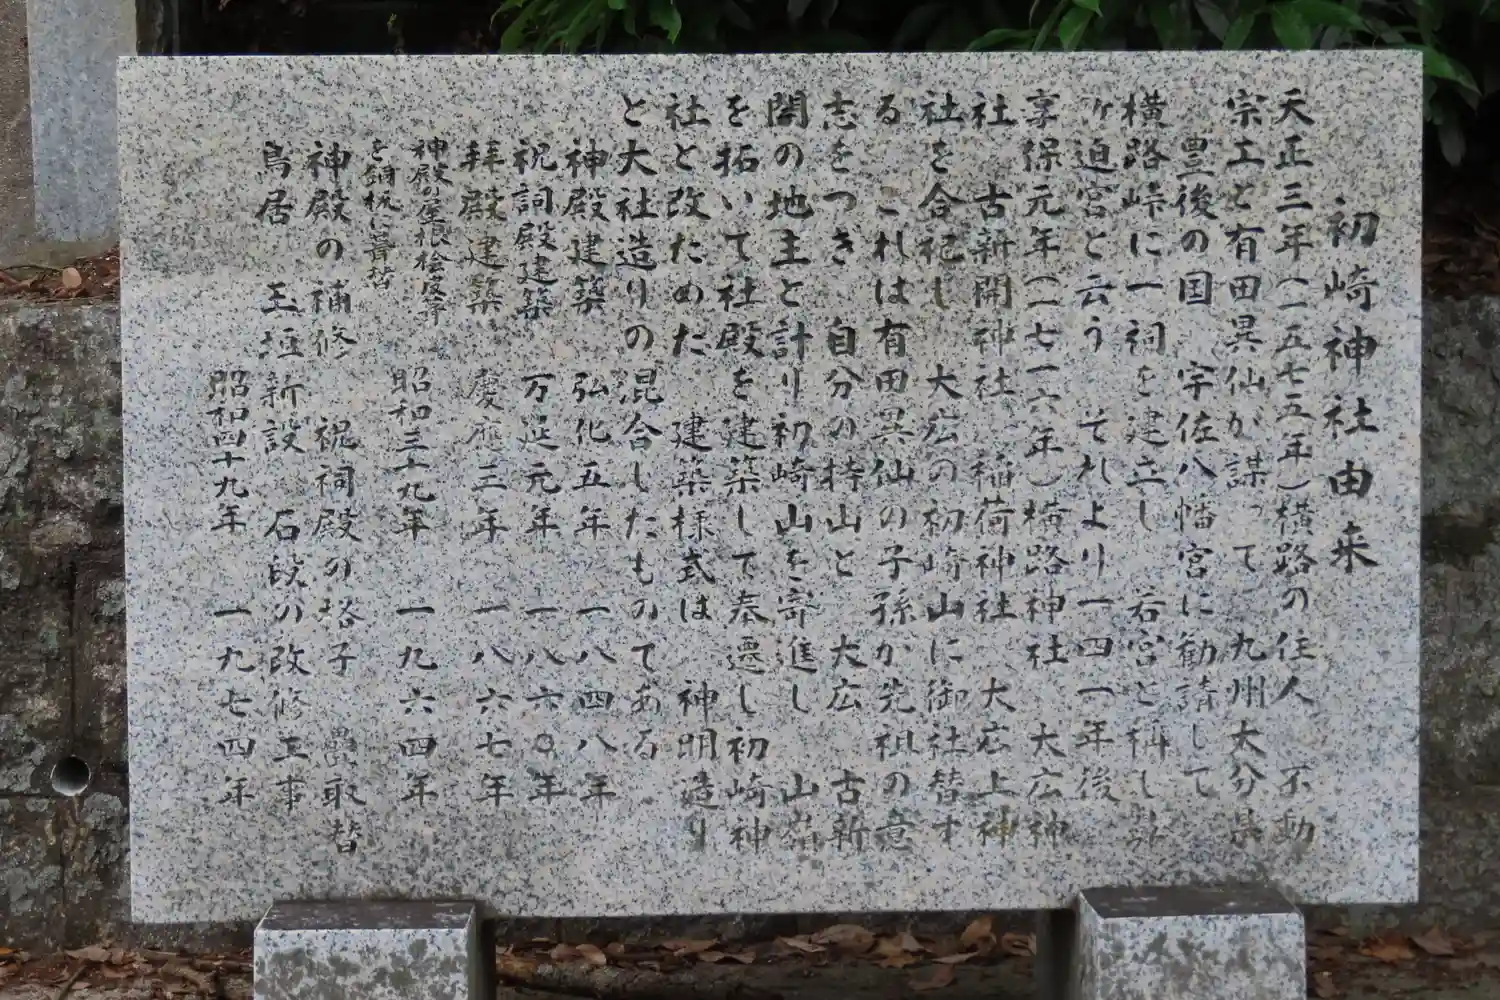 初崎神社由来
天正三年(一五七五年)横路の住人 不動
宗工と有田異仙が謀って 九州大分県
豊後の国 宇佐八幡宮に勧請して
横路峠に一祠を建立し 若宮と称し
ヶ迫宮と云う それより一四一年後
享保元年(一七一六年)横路神社 大広神
社 古新開神社 稲荷神社 大広上神
社を合祀し 大広の初崎山に御社替オ
る これは有田異仙の子孫が先祖の意
志をつぎ 自分の持山と 大広 古新
開の地主と計り初崎山を寄進し 山嶺
を拓いて社殿を建築して奉遷し初崎神
社と改ためた 建築様式は 神明造り
と大社造りの混合したものである
神殿建築 弘化五年 一八四八年
祝詞殿建築 万延元年 一八六〇年
拝殿建築 慶應三年 一八六七年
神殿の屋根桧皮葺
を銅板に葺替 昭和三十九年 一九六四年
神殿の補修 祝祠殿の格子 畳取替
鳥居 玉垣新設 石段の改修工事
昭和四十九年 一九七四年